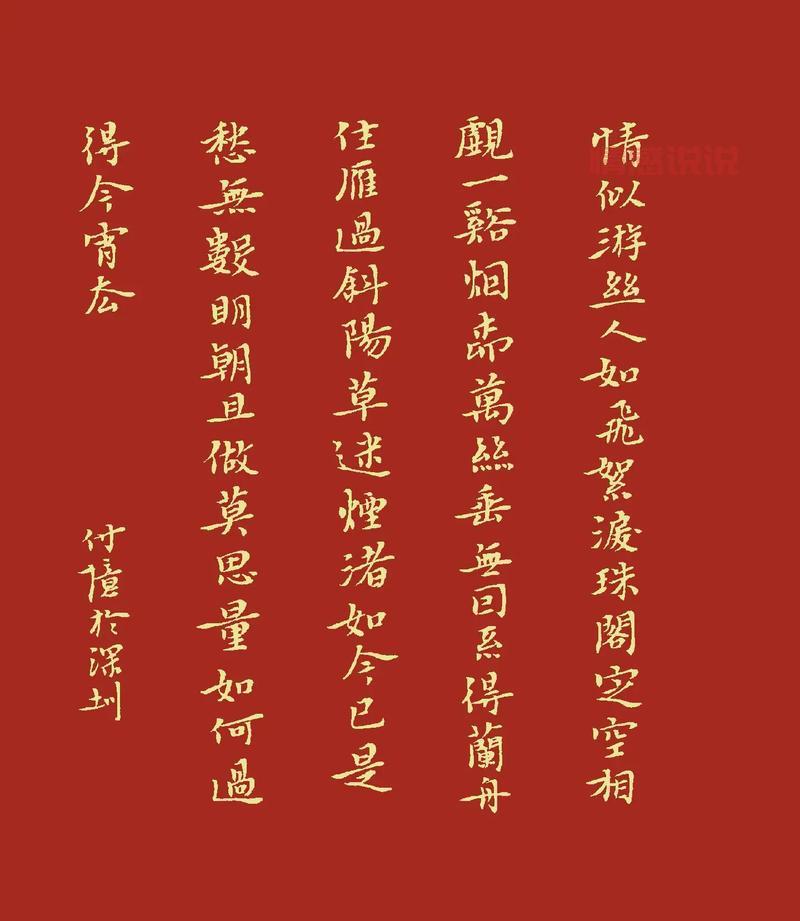 情似游絲人如飛絮淚珠閣定空相
覷一谿烟桺萬絲垂無因系得蘭舟
住雁過斜陽草迷煙渚如今已是
愁無數明朝且做莫思量如何過
得今宵去
付憶於深圳
情感说说